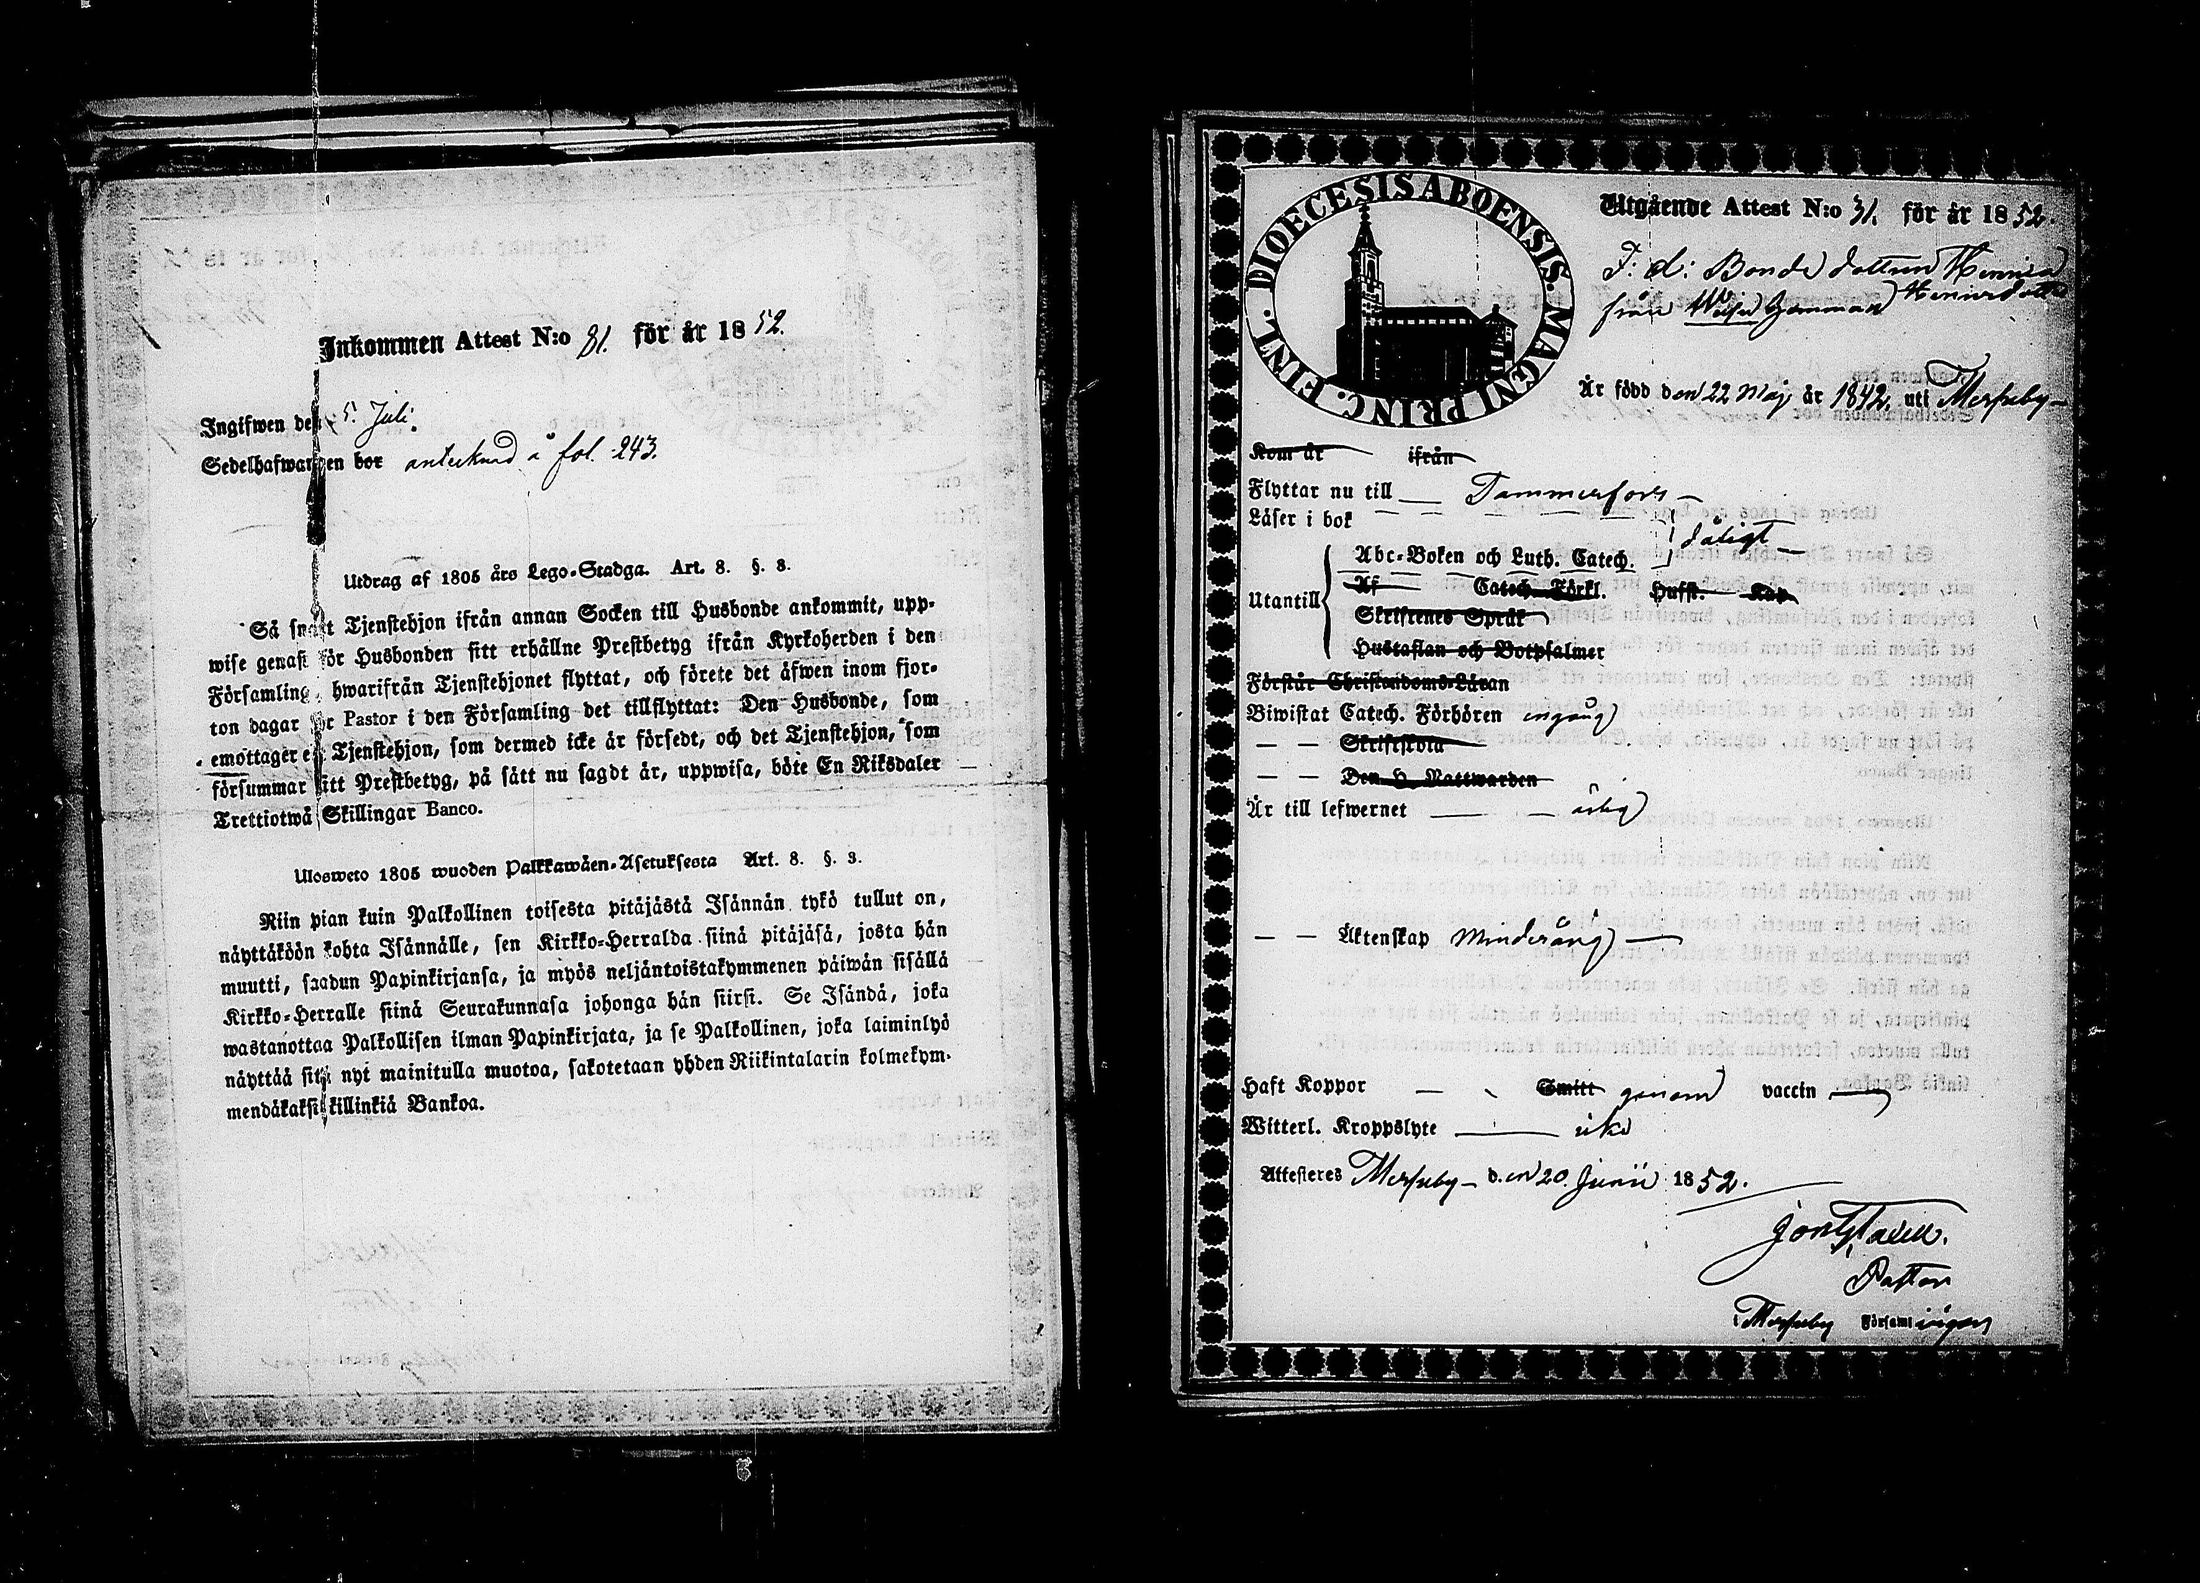 Inkommen Attest N:o 81. för år 1852.
Ingifwen den 5. Juli.
Sedelhafwaren bor antecknad å fol. 243.
Utdrag af 1805 års Lego-Stadga. Art. 8. §. 8.
Så snart Tjenstehjon ifrån annan Socken till Husbonde ankommit, upp-
wise genast för Husbonden sitt erhållne Prestbetyg ifrån Kyrkoherden i den
Församling, hwarifrån Tjenstehjonet flyttat, och förete det äfwen inom fjor-
ton dagar för Pastor i den Församling det tillflyttat: Den Husbonde, som
emottager ett Tjenstehjon, som dermed icke är försedt, och det Tjenstehjon, som
försummar sitt Prestbetyg, på sätt nu sagdt är, uppwisa, böte En Riksdaler
Trettiotwå Skillingar Banco.
Ulosweto 1805 wuoden Palkkawäen-Asetuksesta Art. 8. §. 3.
Niin pian kuin Palkollinen toisesta pitäjästä Isännän tykö tullut on,
näyttäköön kohta Isännälle, sen Kirkko-Herralda siinä pitäjäsä, josta hän
muutti, saadun Papinkirjansa, ja myös neljäntoistakymmenen päiwän sisällä
Kirkko-Herralle siinä Seurakunnasa johonga hän siirsi. Se Isändä, joka
wastanottaa Palkollisen ilman Papinkirjata, ja se Palkollinen, joka laiminlyö
näyttää sitä nyt mainitulla muotoa, sakotetaan yhden Riikintalarin kolmekym-
mendäkaksi killinkiä Bankoa.
DIOECESIS ABOENSIS. MAGNI PRINC. FINL.
Utgående Attest N:o 31. för år 1852.
F: d: Bonde dottren
från
Är född den 22 Maj år 1842, uti Messuby
Kom år ifrån
Flyttar nu till Tammerfors
Läser i bok
dåligt
Abc-Boken och Luth. Catech.
Utantill
Af Catech. Förkl. Husst. Kap.
Skriftenes Språk
Hustaflan och Botpsalmer
Förstår Christendoms-Läran
Biwistat Catech. Förhören engång
— — Skriftskola
— — Den H. Nattwarden
Är till lefwernet — — ärlig
— — Äktenskap Minderårig
Haft Koppor — Smitt genom vaccin
Witterl. Kroppslyte — icke
Attesteres Messuby d. en 20. Junii 1852.
Pastor
i Messuby Församlingen